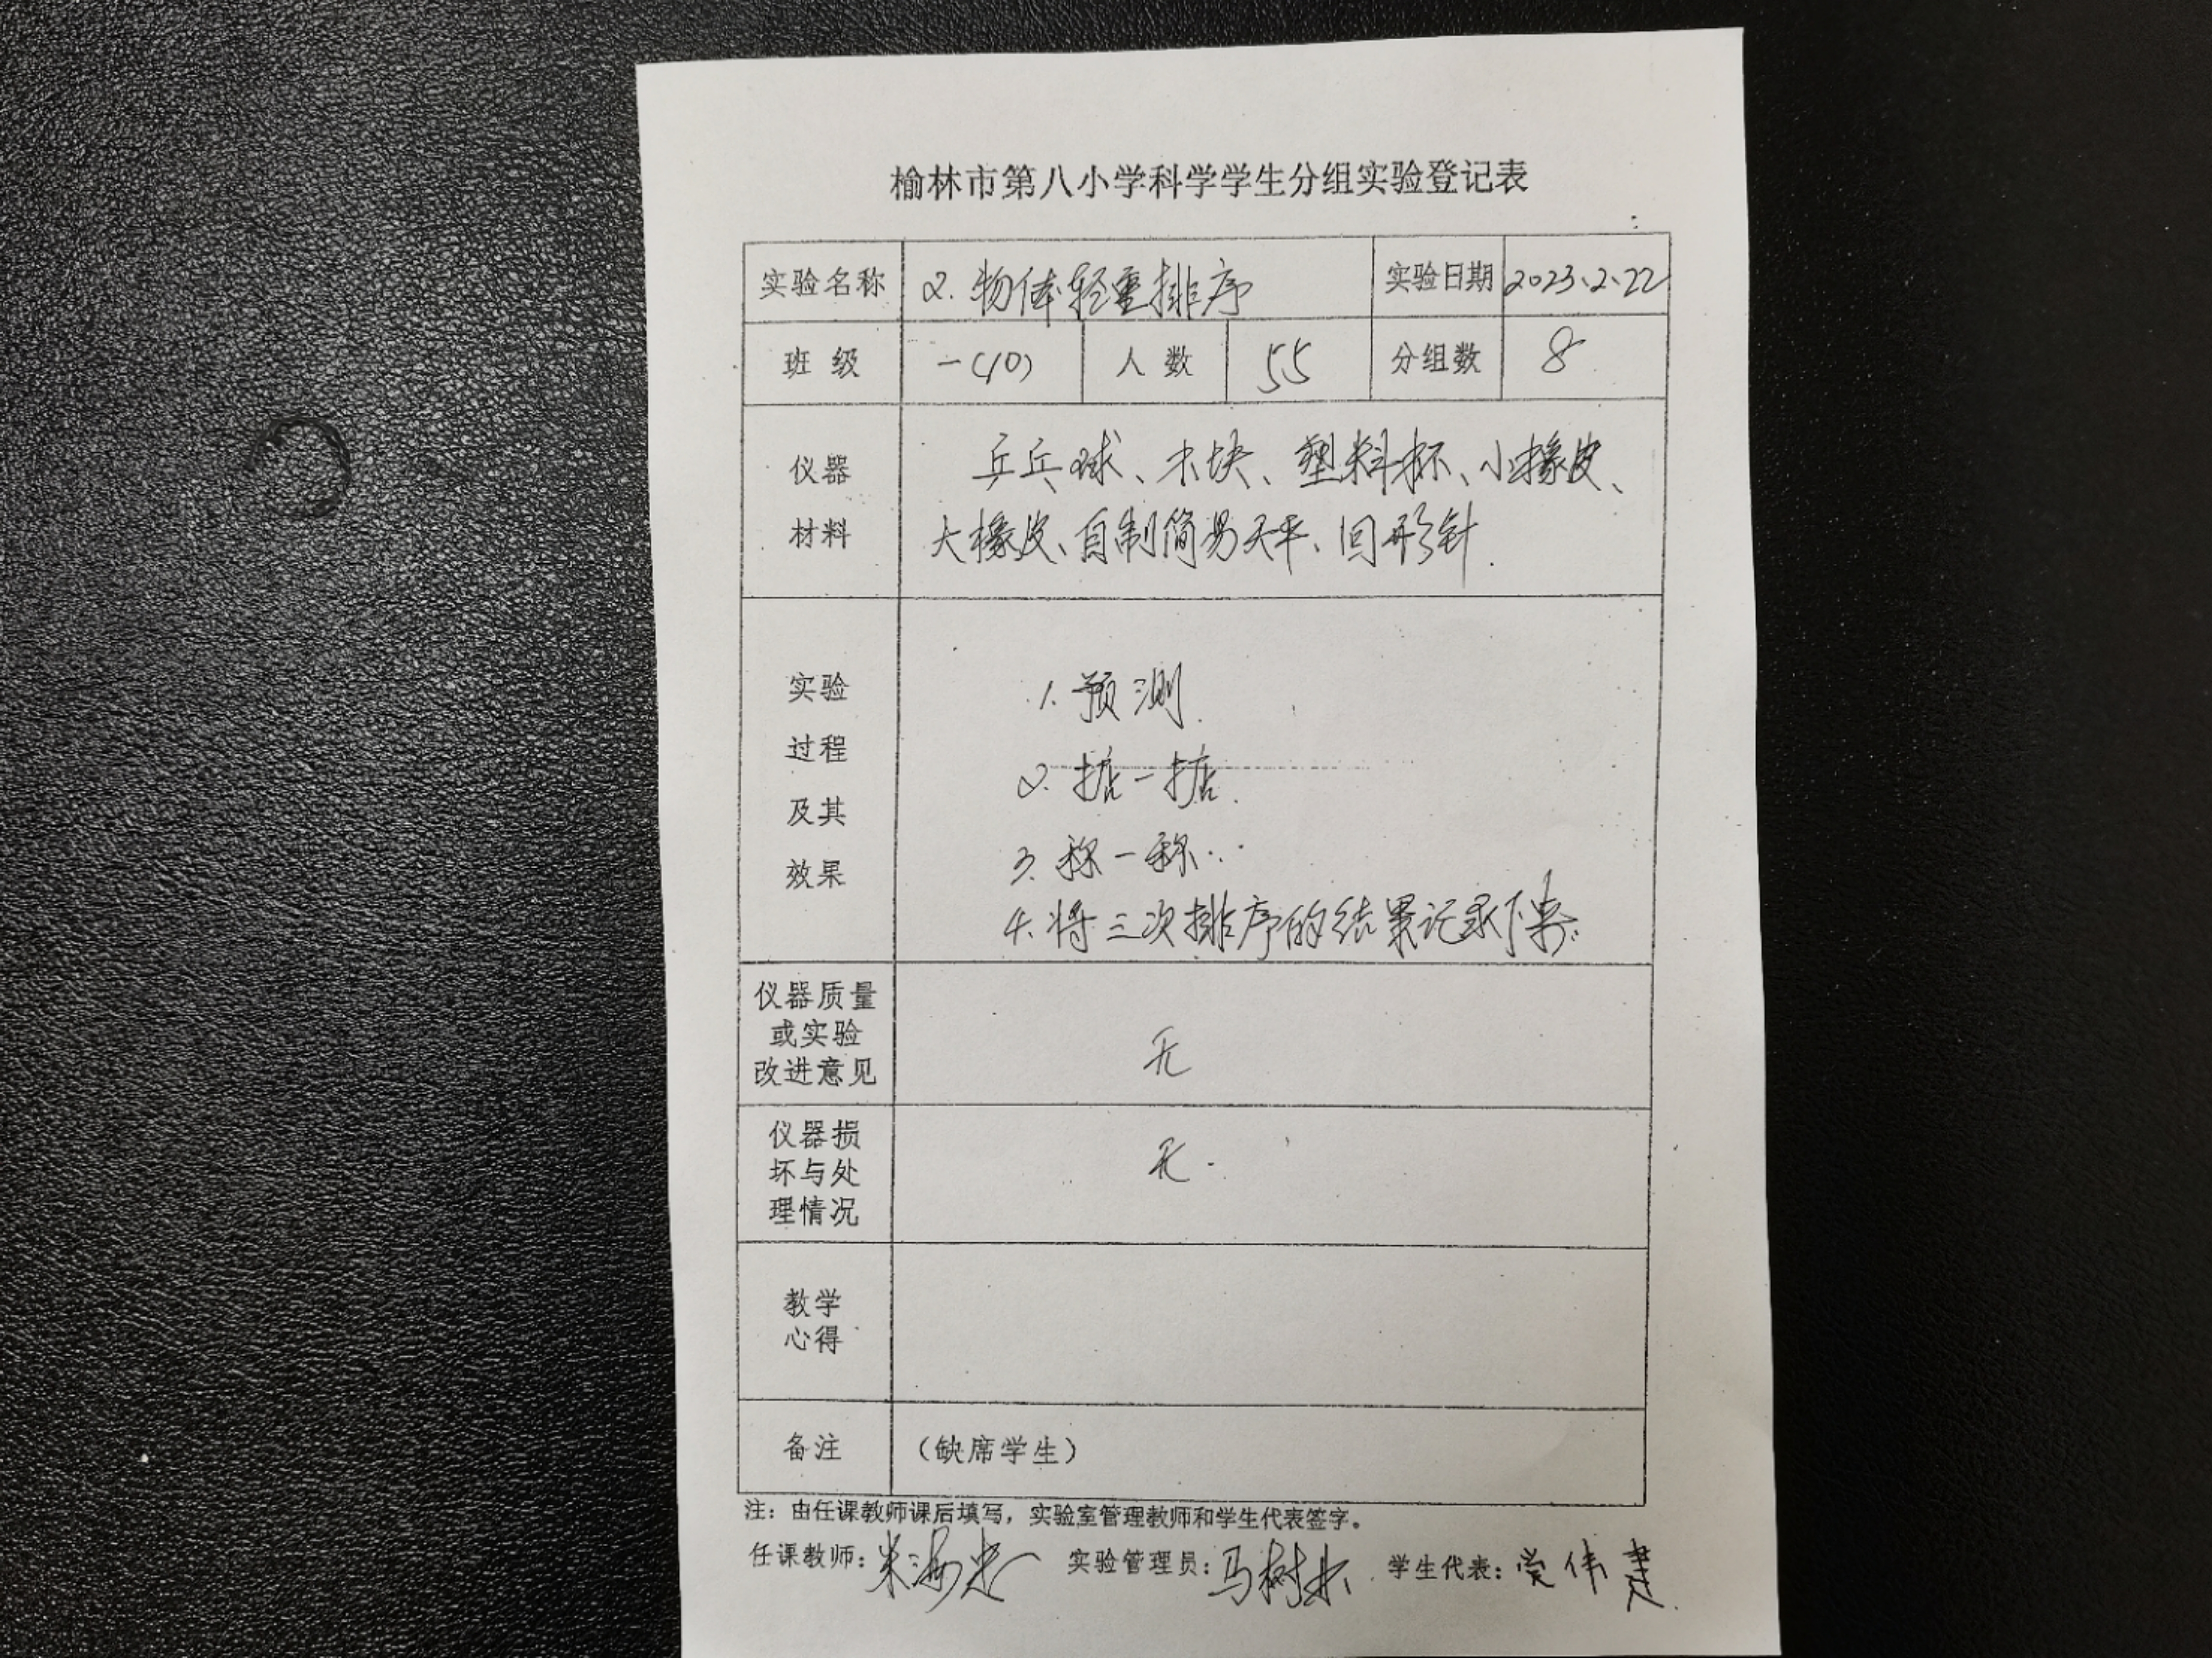 榆林市第八小学科学学生分组实验登记表
实验名称 2.物体轻重排序 实验日期 2023.2.22
班级 一(10) 人数 55 分组数 8
仪器
材料
乒乓球、木块、塑料杯、小橡皮、
大橡皮、自制简易天平、回形针.
实验
过程
及其
效果
1.预测.
2.掂一掂.
3.称一称..
4.将三次排序的结果记录下来.
仪器质量
或实验
改进意见
无
仪器损
坏与处
理情况
无.
教学
心得
备注 (缺席学生)
注：由任课教师课后填写，实验室管理教师和学生代表签字。
任课教师： 实验管理员：马树 学生代表：伟